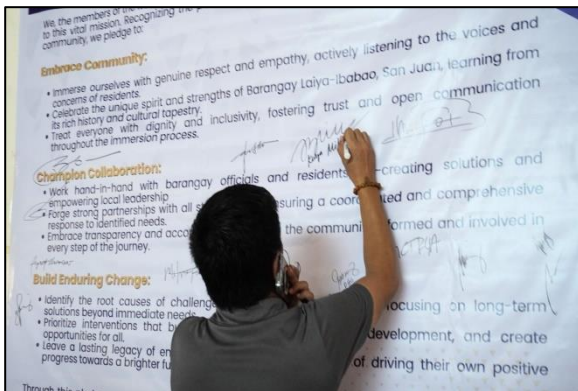 We, the members of the
to this vital mission. Recognizing the
community, we pledge to:
Embrace Community:
• Immerse ourselves with genuine respect and empathy, actively listening to the voices and
concerns of residents.
• Celebrate the unique spirit and strengths of Barangay Laiya-Ibabao, San Juan, learning from
its rich history and cultural tapestry.
• Treat everyone with dignity and inclusivity, fostering trust and open communication
throughout the immersion process.
Champion Collaboration:
• Work hand-in-hand with barangay officials and residents -creating solutions and
empowering local leadership
• Forge strong partnerships with all suring a coordinated and comprehensive
response to identified needs.
• Embrace transparency and acco the communi formed and involved in
every step of the journey.
Build Enduring Change:
• Identify the root causes of challeng focusing on long-term
solutions beyond immediate needs.
• Prioritize interventions that bu development, and create
opportunities for all.
• Leave a lasting legacy of em of driving their own positive
progress towards a brighter fu
Through this